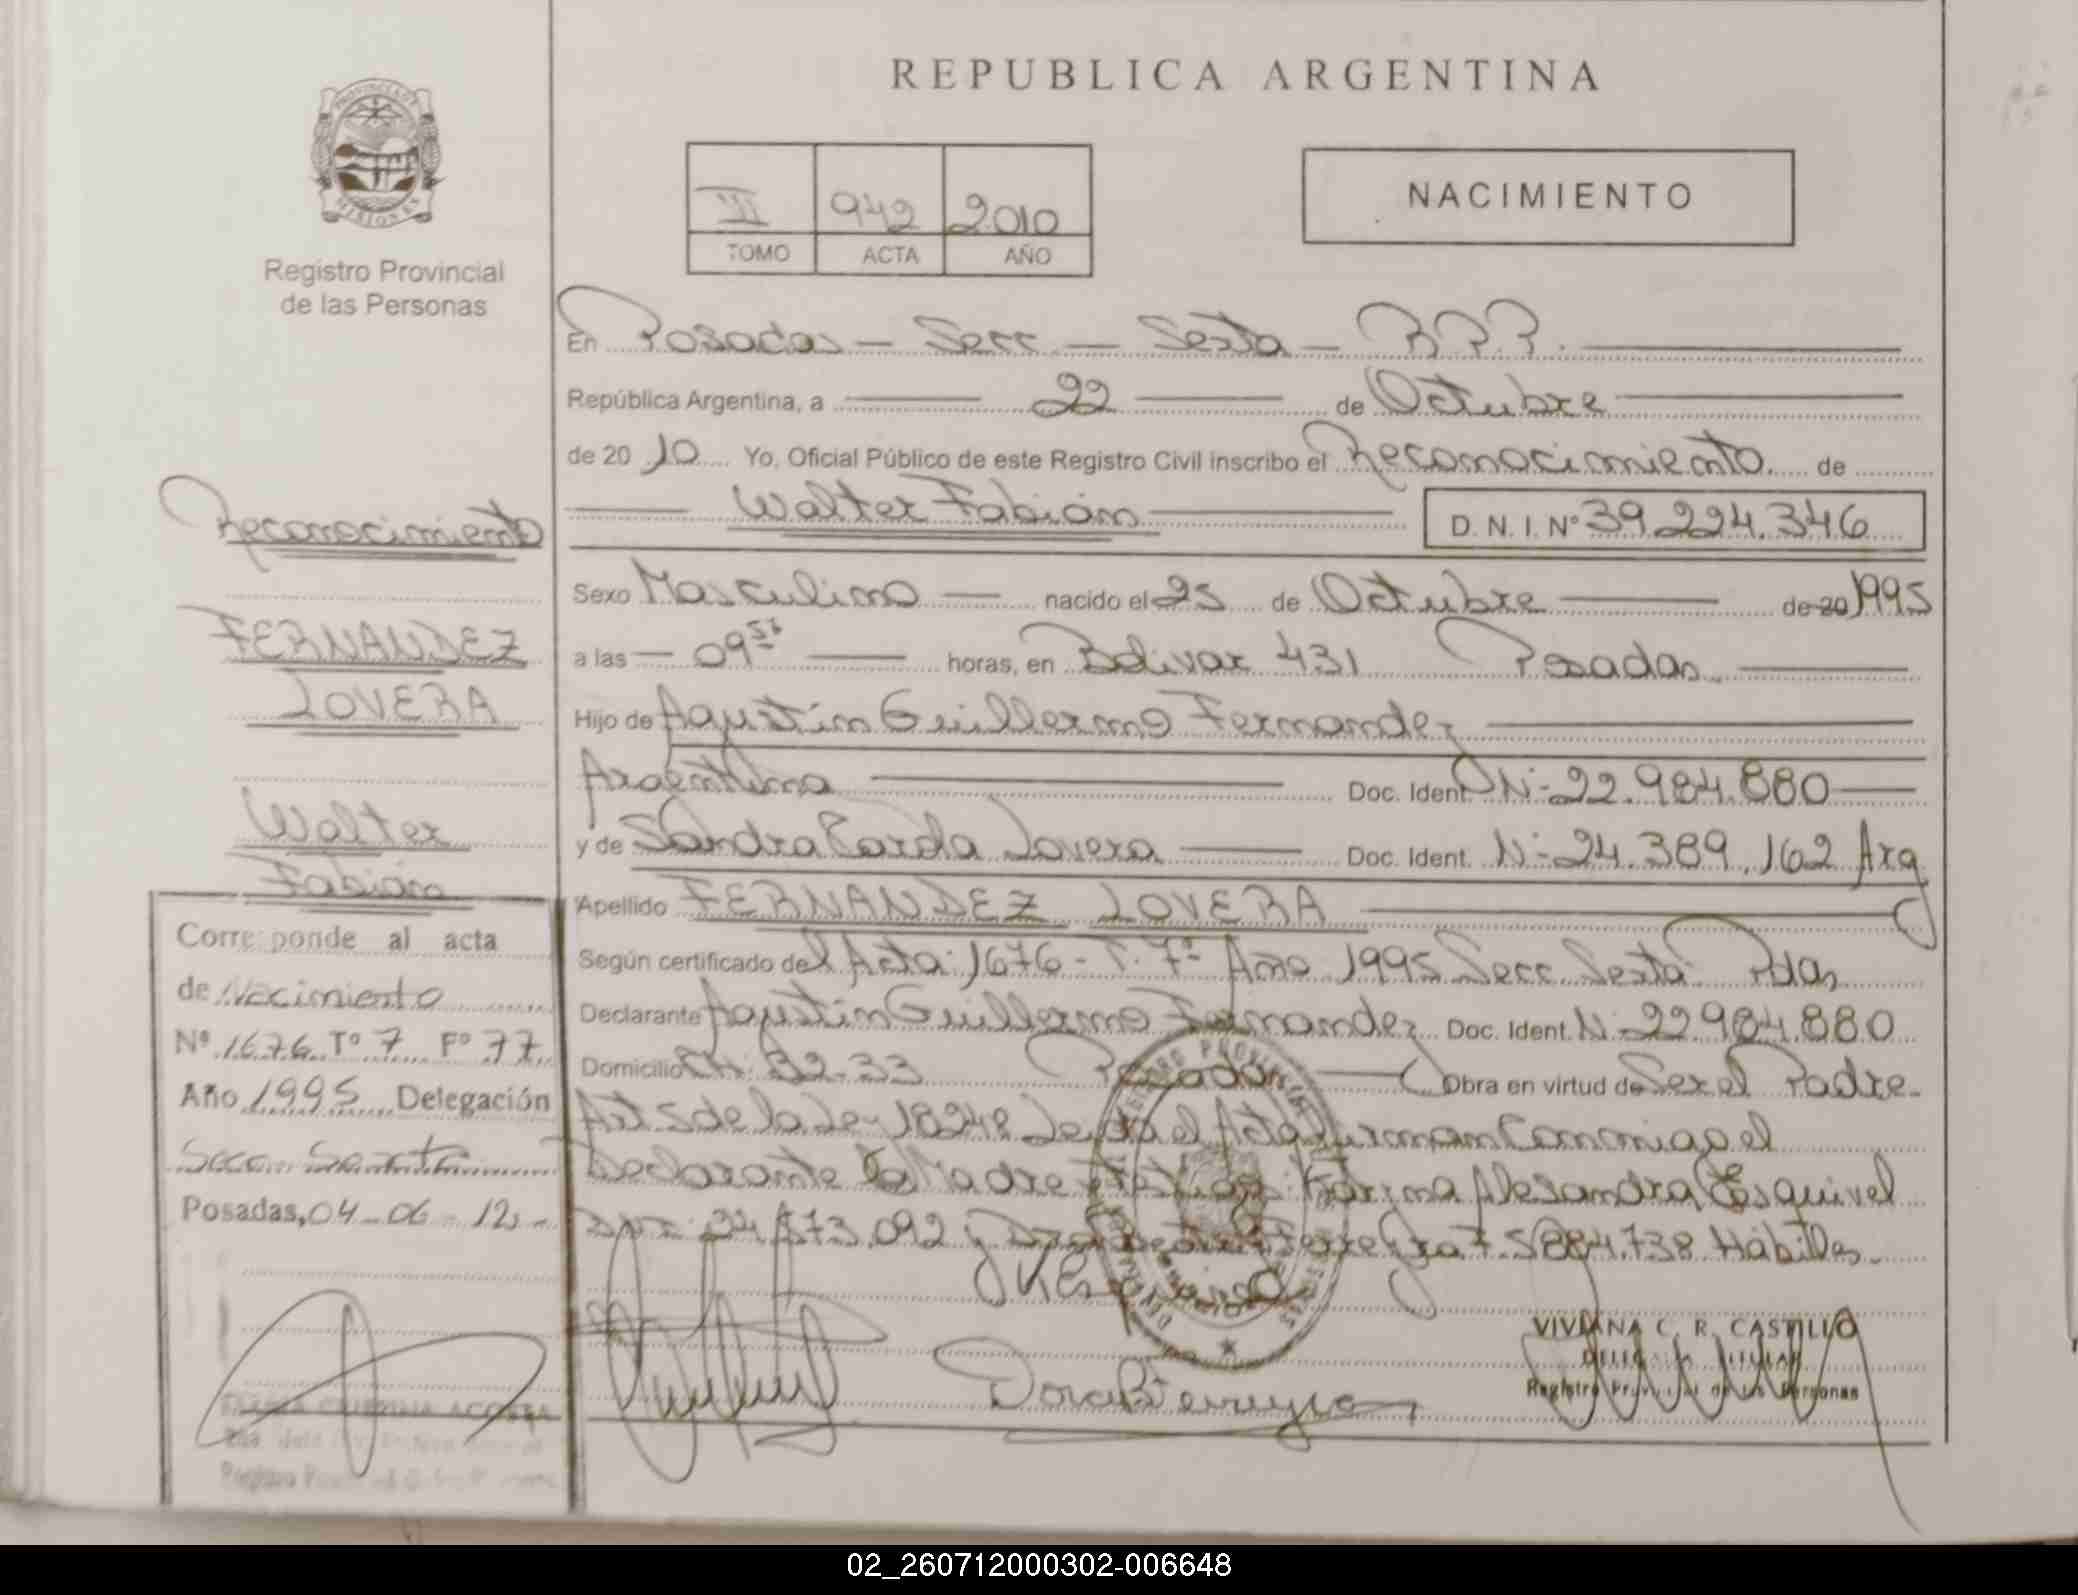 REPUBLICA ARGENTINA
PROVINCIA DE
MISIONES
Registro Provincial
de las Personas
III 942 2010
TOMO ACTA AÑO
NACIMIENTO
En Posadas - Secc - Sexta - R.P.P.
República Argentina, a 22 de Octubre
de 20 10 Yo, Oficial Público de este Registro Civil inscribo el Reconocimiento de
Walter Fabián D. N. I. Nº 39.224.346
Sexo Masculino nacido el 25 de Octubre de 20 1995
a las 09 56 horas, en Bolivar 431 Posadas
Hijo de Agustin Guillermo Fernandez
Argentino Doc. Ident. Nº 22.984.880
y de Sandra Lovera Doc. Ident. Nº 24.389.162 Arg
Apellido FERNANDEZ LOVERA
Según certificado del Acta: 1676 - T. 7º Año 1995 Secc Sexta Pdas
Declarante Agustin Guillermo Fernandez Doc. Ident. Nº 22.984.880
Domicilio CH: 32-33 Posadas Obra en virtud de Ser el Padre
Art. 5 de la Ley 18248 Leida el Acta Firman Conmigo el
Declarante la Madre y Testigos: Karina Alejandra Esquivel
y Ferreyra 5884.738 Hábiles
Reconocimiento
FERNANDEZ
LOVERA
Walter
Fabián
Corresponde al acta
de Nacimiento
Nº 1676 Tº 7 Fº 77
Año 1995 Delegación
Secc. Sexta
Posadas, 04-06-12
ACOSTA
VIVIANA C. R. CASTILLO
DELEGADA TITULAR
Registro Provincial de las Personas
02_260712000302-006648